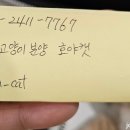 -2411-7767
고양이 분양 호야캣
_cat